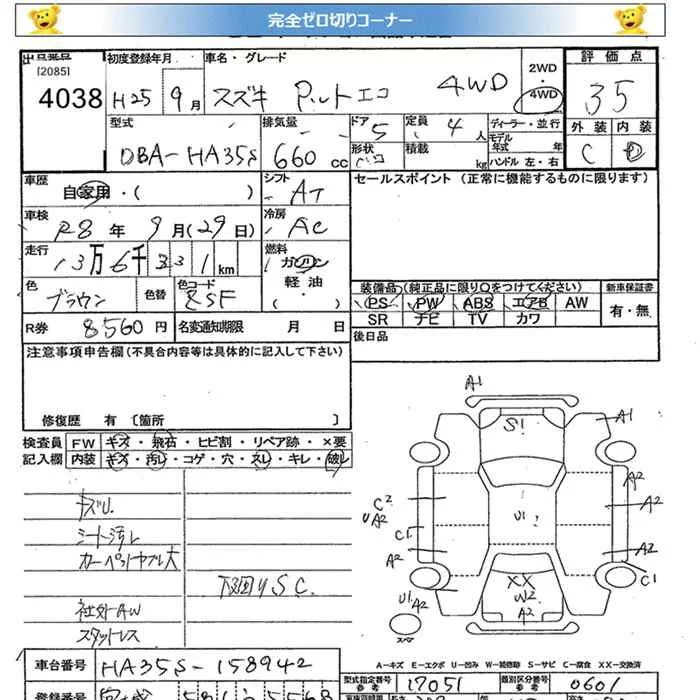 完全ゼロ切りコーナー
出品番号
[2085]
4038
初度登録年月
H25 9月
車名・グレード
スズキ アルトエコ 4WD
2WD・4WD
評価点
3.5
外装 内装
C D
型式
DBA-HA35S
排気量
660cc
ドア
5
形状
定員
4人
積載
kg
ディーラー・並行
モデル年式 年
ハンドル 左・右
車歴
自家用・( )
車検
R8年9月(29日)
走行
13万6千331km
色
ブラウン
色替
色コード
R券
8560円
名変通知期限 月 日
シフト
AT
冷房
AC
燃料
ガソリン
軽油
(・)
セールスポイント (正常に機能するものに限ります)
装備品(純正品に限り○をつけてください) 新車保証書
PS PW ABS エアB AW 有・無
SR ナビ TV カワ
後日品
注意事項申告欄(不具合内容等は具体的に記入して下さい)
修復歴 有 〔箇所 〕
検査員 FW キズ・飛石・ヒビ割・リペア跡・×要
記入欄 内装 キズ・汚レ・コゲ・穴・スレ・キレ・破レ
キズU
シート汚レ
カーペットヤブレ大
下回りSC.
社外AW
スタットレス
A1
S1
A1
A2
A2
A2
C1
C2
UA2
C1
A2
U1 A2
U1
XX
W2
A2
スペア
A-キズ E-エクボ U-凹み W-補修跡 S-サビ C-腐食 XX-交換済
車台番号
HA35S-158942
型式指定番号
参考
17051
類別区分番号
参考
0601
登録番号